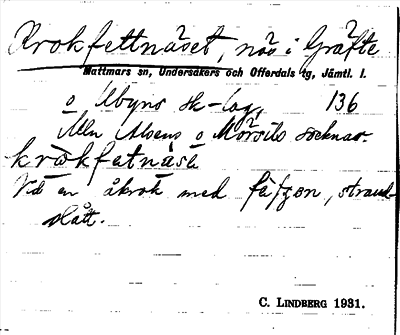 Krokfettnäset, näs i Gräfte
Mattmars sn, Undersåkers och Offerdals tg, Jämtl. l.
o Ubyns sk-lag, 136
Alsens o Mörsils socknar.
krokfetnäse
Vid en åkrok med fä/gen, strand-
slått.
C. LINDBERG 1931.